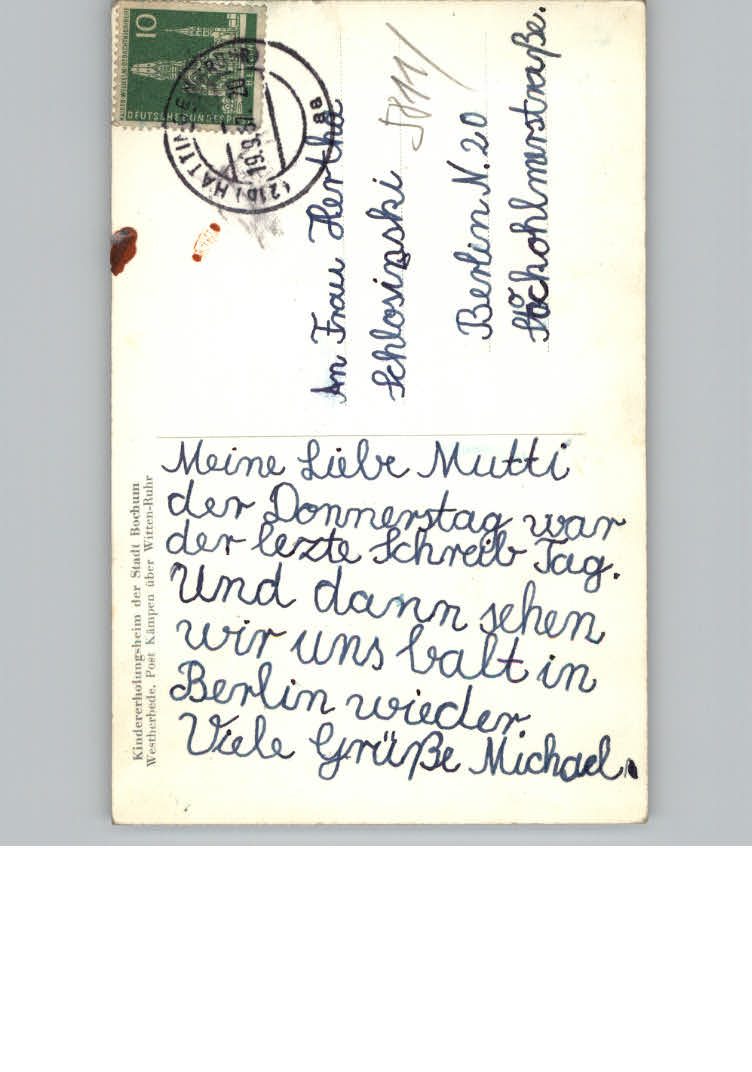 Meine Liebe Mutti
der Donnerstag war
der lezte Schreib Tag.
Und dann sehen
wir uns balt in
Berlin wieder
Viele Grüße Michael.
An Frau Hertha
Schlosinski
Berlin N. 20
Stockohlmerstraße.
5811/
Kindererholungsheim der Stadt Bochum
Westherbede, Post Kämpen über Witten-Ruhr
10
DEUTSCHE BUNDESPOST
(21b) HATTINGEN
19.9.59
aa